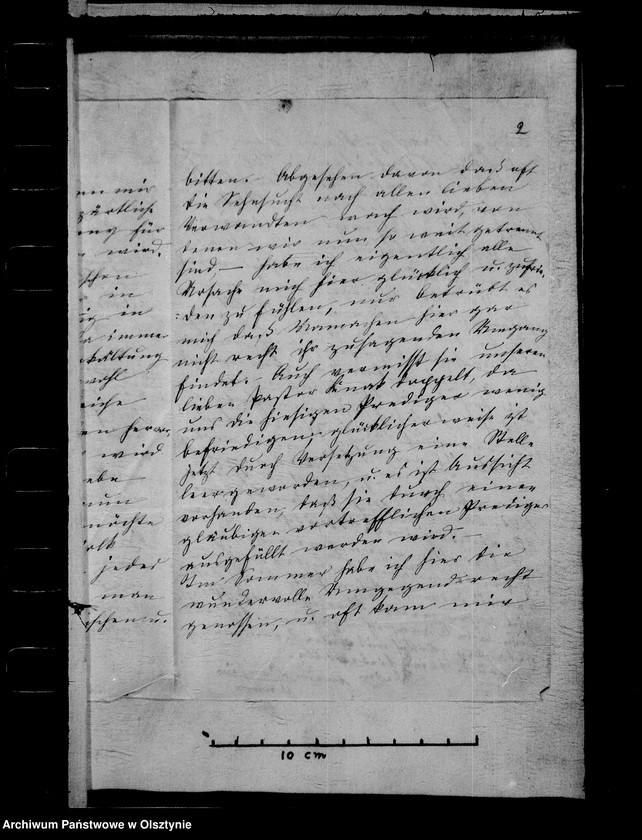 2
bitten. Abgesehen davon daß oft
die Sehnsucht nach allen lieben
Verwandten wach wird, von
denen wir nun so weit getrennt
sind, — habe ich eigentlich alle
Ursache mich hier glücklich u. zufrie-
:den zu fühlen, nur betrübt es
mich daß Mamachen hier gar
nicht recht ihr zusagenden Umgang
findet. Auch vermißt sie unseren
lieben Pastor Knak doppelt, da
uns die hiesigen Prediger wenig
befriedigen, glücklicherweise ist
jetzt durch Versetzung eine Stelle
leer geworden, u. es ist Aussicht
vorhanden, daß sie durch einen
gläubigen vortrefflichen Prediger
ausgefüllt werden wird. —
Im Sommer habe ich hier die
wundervolle Umgegend recht
genossen, u. oft kam mir
mir
zärtliche
für
wird.
in
in
imme
wohl
herr
wird
nun
möchte
jeder
man
u.
10 cm
Archiwum Państwowe w Olsztynie